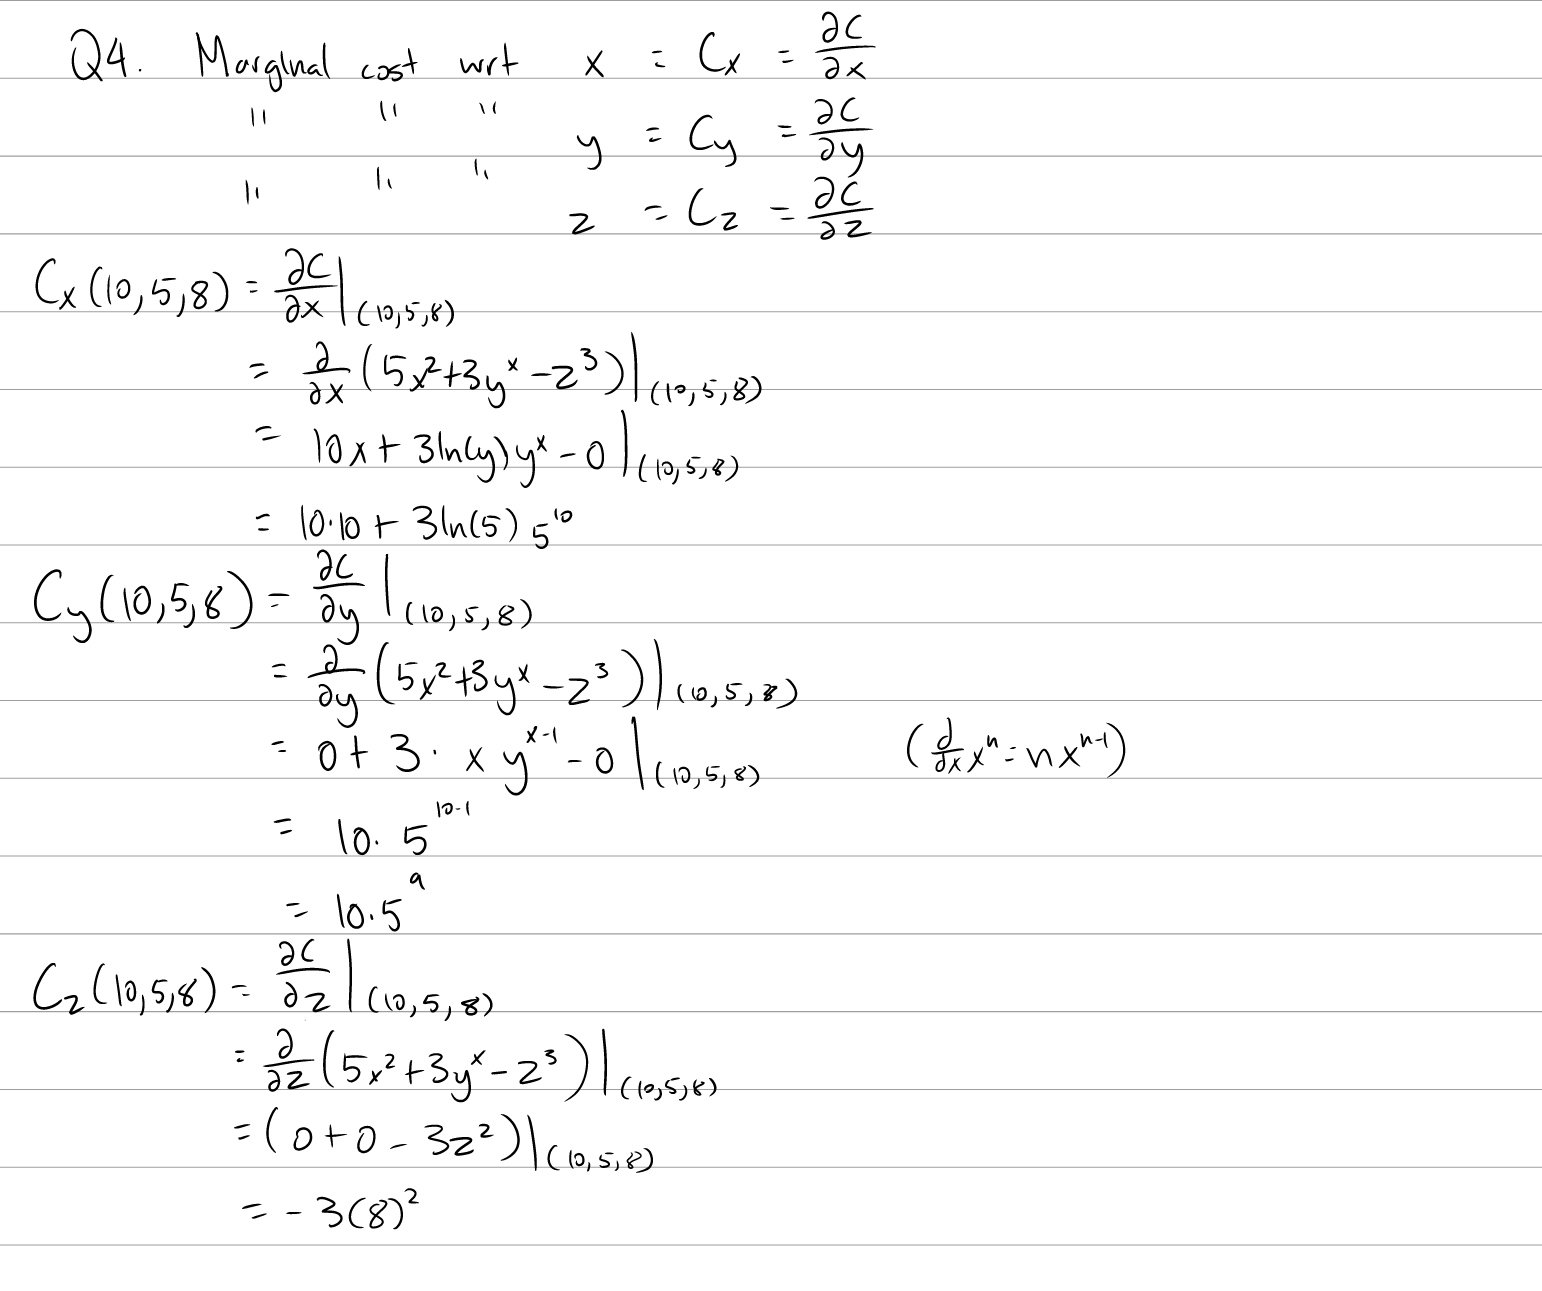 Q4. Marginal cost wrt x = Cx = ∂C/∂x
" " " y = Cy = ∂C/∂y
" " " z = Cz = ∂C/∂z
Cx(10,5,8) = ∂C/∂x |(10,5,8)
= ∂/∂x (5x²+3y^x - z³)|(10,5,8)
= 10x + 3ln(y)y^x - 0 |(10,5,8)
= 10·10 + 3ln(5) 5^10
Cy(10,5,8) = ∂C/∂y |(10,5,8)
= ∂/∂y (5x²+3y^x - z³)|(10,5,8)
= 0 + 3· x y^(x-1) - 0 |(10,5,8) (∂/∂x x^n = nx^(n-1))
= 10· 5^(10-1)
= 10·5^9
Cz(10,5,8) = ∂C/∂z |(10,5,8)
= ∂/∂z (5x²+3y^x - z³)|(10,5,8)
= (0+0 - 3z²)|(10,5,8)
= -3(8)²